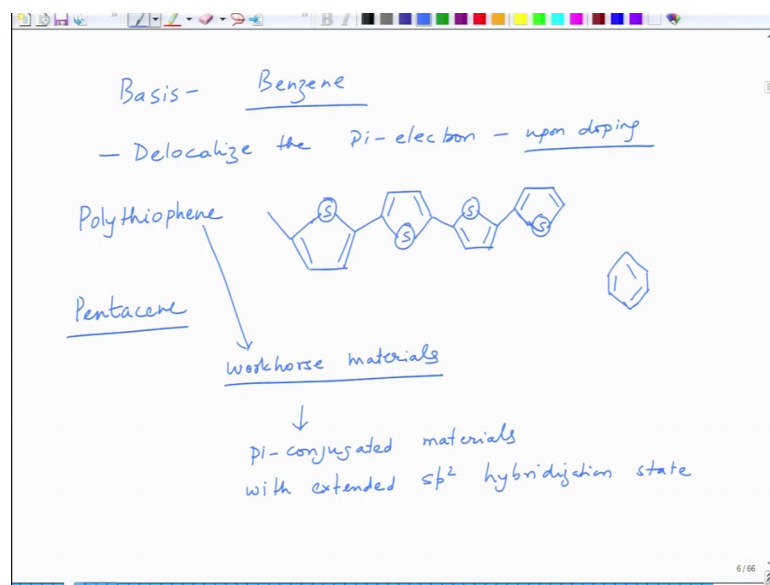 Basis- Benzene
- Delocalize the Pi-electron - upon doping
Polythiophene
S S S S
Pentacene
workhorse materials
Pi-conjugated materials
with extended sp² hybridization state
6/66